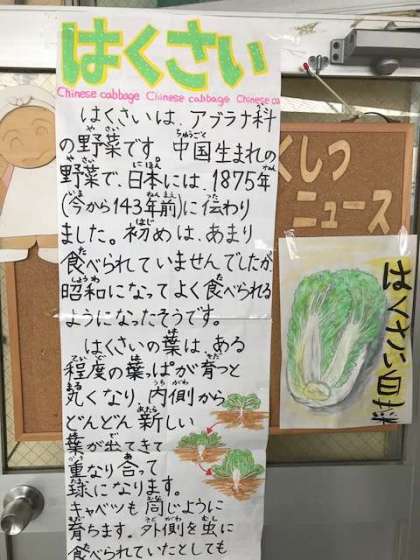 はくさい
Chinese cabbage Chinese cabbage Chinese ca
はくさいは、アブラナ科
の野菜です 中国生まれの
野菜で、日本には、1875年
(今から143年前)に伝わり
ました。初めは、あまり
食べられていませんでしたが
昭和になってよく食べられる
ようになったそうです。
はくさいの葉は、ある
程度の葉っぱが育つと
丸くなり、内側から
どんどん新しい
葉が出てきて
重なり合って
球になります。
キャベツも同じように
育ちます。外側を虫に
食べられていたとしても
くしつ
ニュース
はくさい